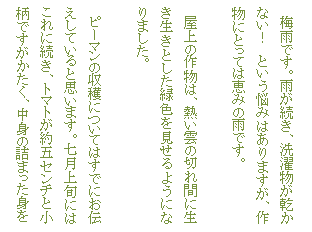 梅雨です。雨が続き、洗濯物が乾か
ない！　という悩みはありますが、作
物にとっては恵みの雨です。
　屋上の作物は、熱い雲の切れ間に生
き生きとした緑色を見せるようにな
りました。
　ピーマンの収穫についてはすでにお伝
えしていると思います。七月上旬には
これに続き、トマトが約五センチと小
柄ですがかたく、中身の詰まった身を